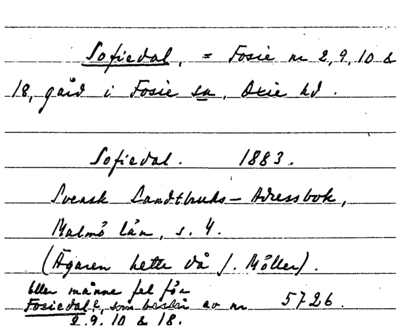 Sofiedal, = Fosie nr 2, 9, 10 &
18, gård i Fosie sn, Oxie hd.
Sofiedal. 1883.
Svensk Landtbruks-Adressbok,
Malmö län, s. 4.
(Ägaren hette då J. Möller).
Eller månne fel för
Fosiedal?, som består av nr 5726.
2. 9. 10 & 18.